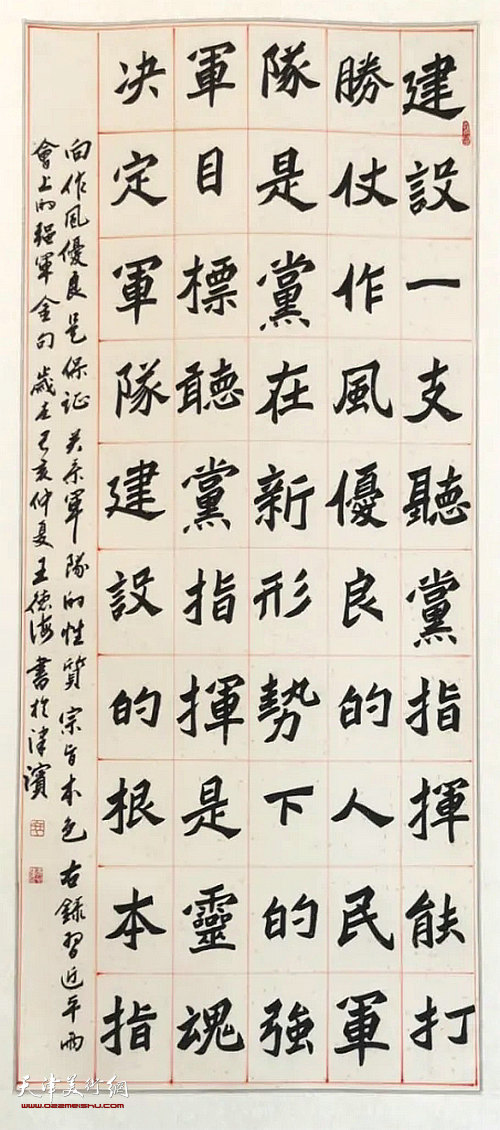 建設一支聽黨指揮能打
勝仗作風優良的人民軍
隊是黨在新形勢下的強
軍目標聽黨指揮是靈魂
决定軍隊建設的根本指
向作風優良是保证关系軍隊的性質宗旨本色右錄習近平两
會上的强軍金句歲在己亥仲夏王德海書於津濱
天津美術網
www.022meishu.com